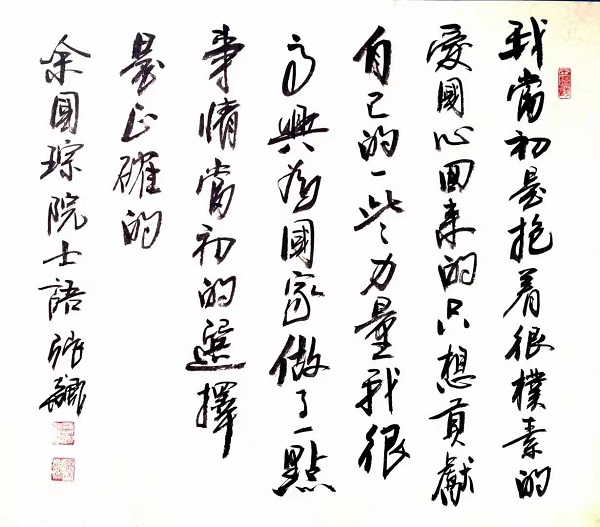 我當初是抱着很樸素的
愛國心回來的只想貢獻
自己的一些力量我很
高興為國家做了一點
事情當初的選擇
是正確的
余國琮院士語 張